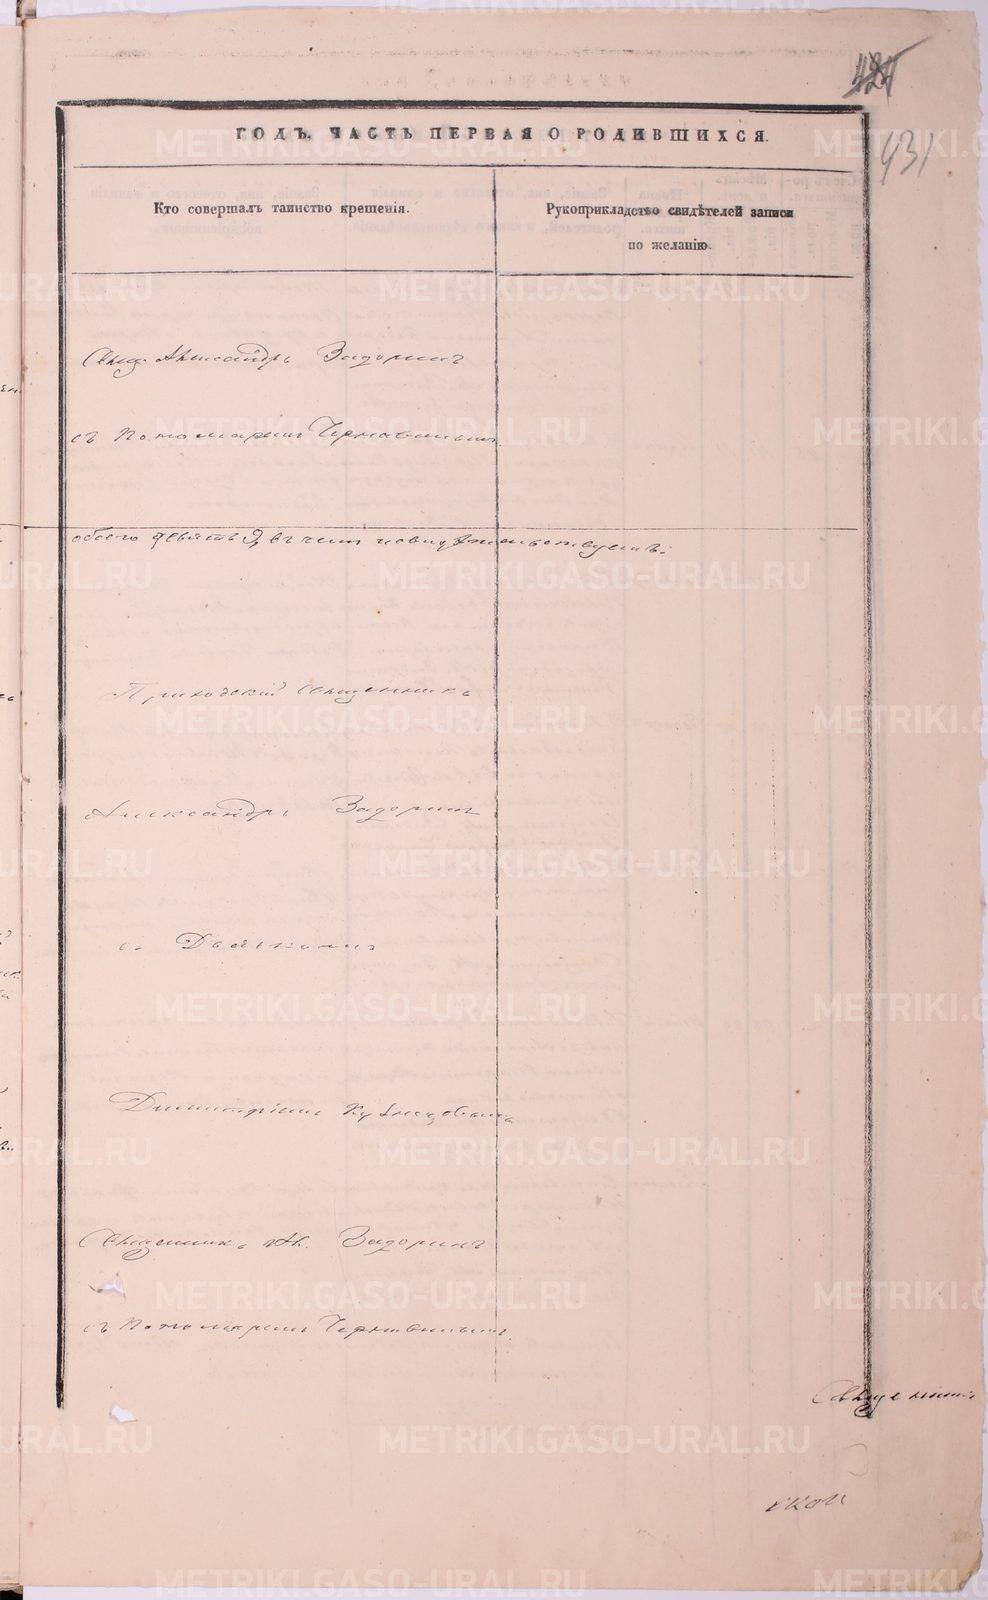 424
431
ГОДЪ, ЧАСТЬ ПЕРВАЯ О РОДИВШИХСЯ.
Кто совершалъ таинство крещенія.
Рукоприкладство свидѣтелей записи
по желанію.
Свящ. Александръ Задоринъ
съ Пономаремъ Чернавинымъ.
обоего девять 9, въ чемъ и свидѣтельствуемъ:
Приходскій Священникъ
Александръ Задоринъ
съ Дьякономъ
Димитріемъ Кузнецовымъ
Священникъ Ал. Задоринъ
съ Пономаремъ Чернавинымъ.
METRIKI.GASO-URAL.RU